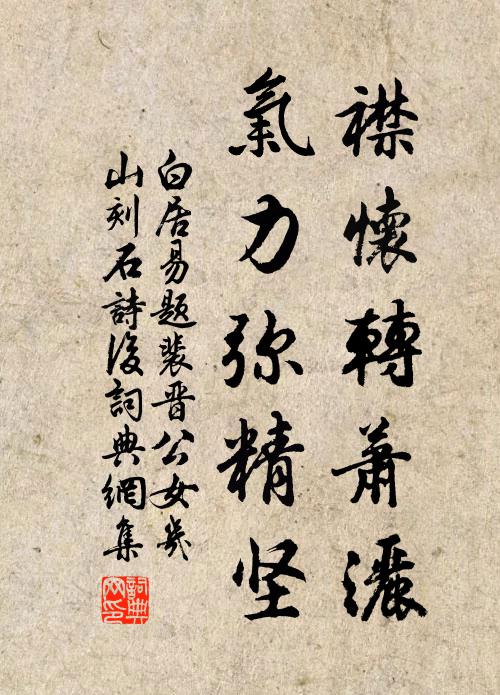 襟懷轉蕭灑
氣力弥精坚
白居易題裴晋公女幾
山刻石詩後詞典網集
詞典
网印